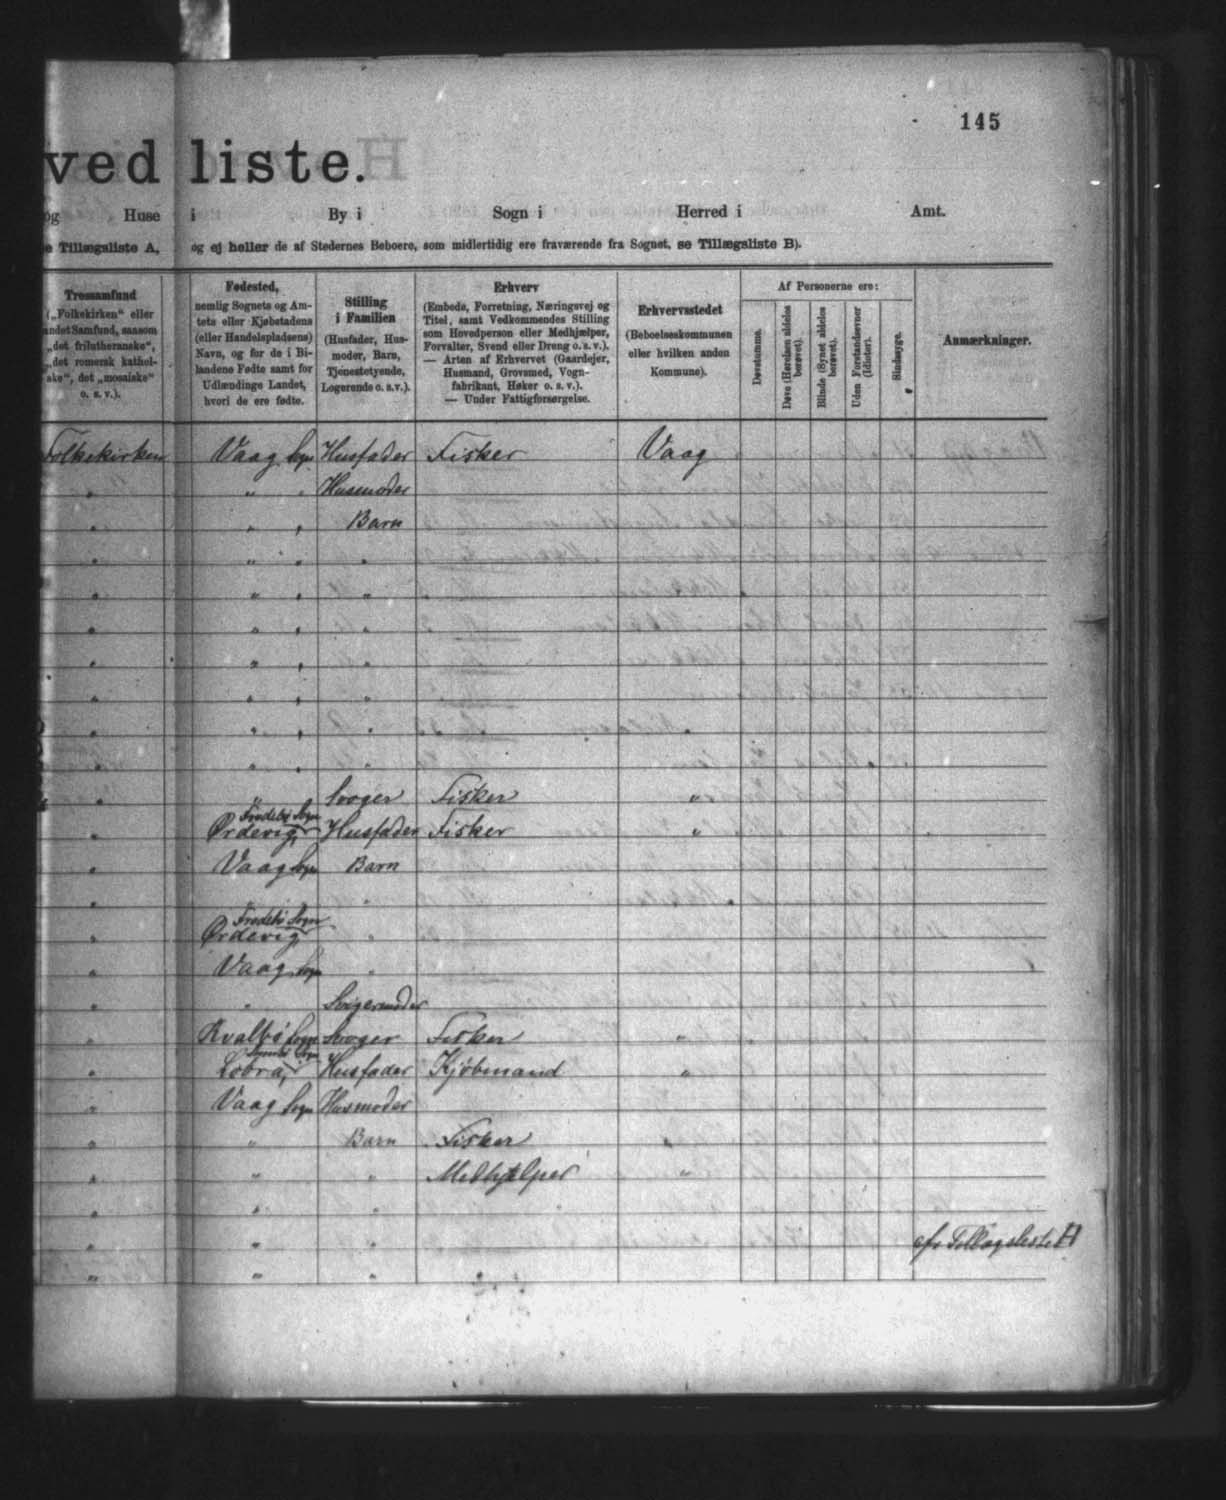 145
ved liste.
og Huse i By i Sogn i Herred i Amt.
e Tillægsliste A, og ej heller de af Stedernes Beboere, som midlertidig ere fraværende fra Sognet, se Tillægsliste B).
Trossamfund
(„Folkekirken“ eller
andet Samfund, saasom
„det frilutheranske“,
„det romersk kathol-
ske“, det „mosaiske“
o. s. v.).
Fødested,
nemlig Sognets og Am-
tets eller Kjøbstadens
(eller Handelspladsens)
Navn, og for de i Bi-
landene Fødte samt for
Udlændinge Landet,
hvori de ere fødte.
Stilling
i Familien
(Husfader, Hus-
moder, Barn,
Tjenestetyende,
Logerende o. s. v.).
Erhverv
(Embede, Forretning, Næringsvej og
Titel, samt Vedkommendes Stilling
som Hovedperson eller Medhjælper,
Forvalter, Svend eller Dreng o. s. v.).
— Arten af Erhvervet (Gaardejer,
Husmand, Grovsmed, Vogn-
fabrikant, Høker o. s. v.).
— Under Fattigforsørgelse.
Erhvervsstedet
(Beboelseskommunen
eller hvilken anden
Kommune).
Af Personerne ere:
Døvstumme.
Døve (Hørelsen aldeles
berøvet).
Blinde (Synet aldeles
berøvet).
Uden Forstandsevner
(Idioter).
Sindssyge.
Anmærkninger.
Folkekirken Vaag Sogn Husfader Fisker Vaag
" " " Husmoder
" " " Barn
" " " "
" " " "
" " " "
" " " "
" " " "
" " " "
" " " "
" " Svoger Fisker "
" Frodebø Sogn
Ørdevig, Husfader Fisker "
" Vaag Sogn Barn
"
" Frodebø Sogn
Ørdevig "
" Vaag Sogn "
" " Svigermoder
" Kvalbø Sogn Svoger Fisker "
" Sumbø Sogn
Lobra, Husfader Kjøbmand "
" Vaag Sogn Husmoder
" " Barn Fisker "
" " " Medhjælper "
" " " "
" " " cfr Tillægsliste A
" " "